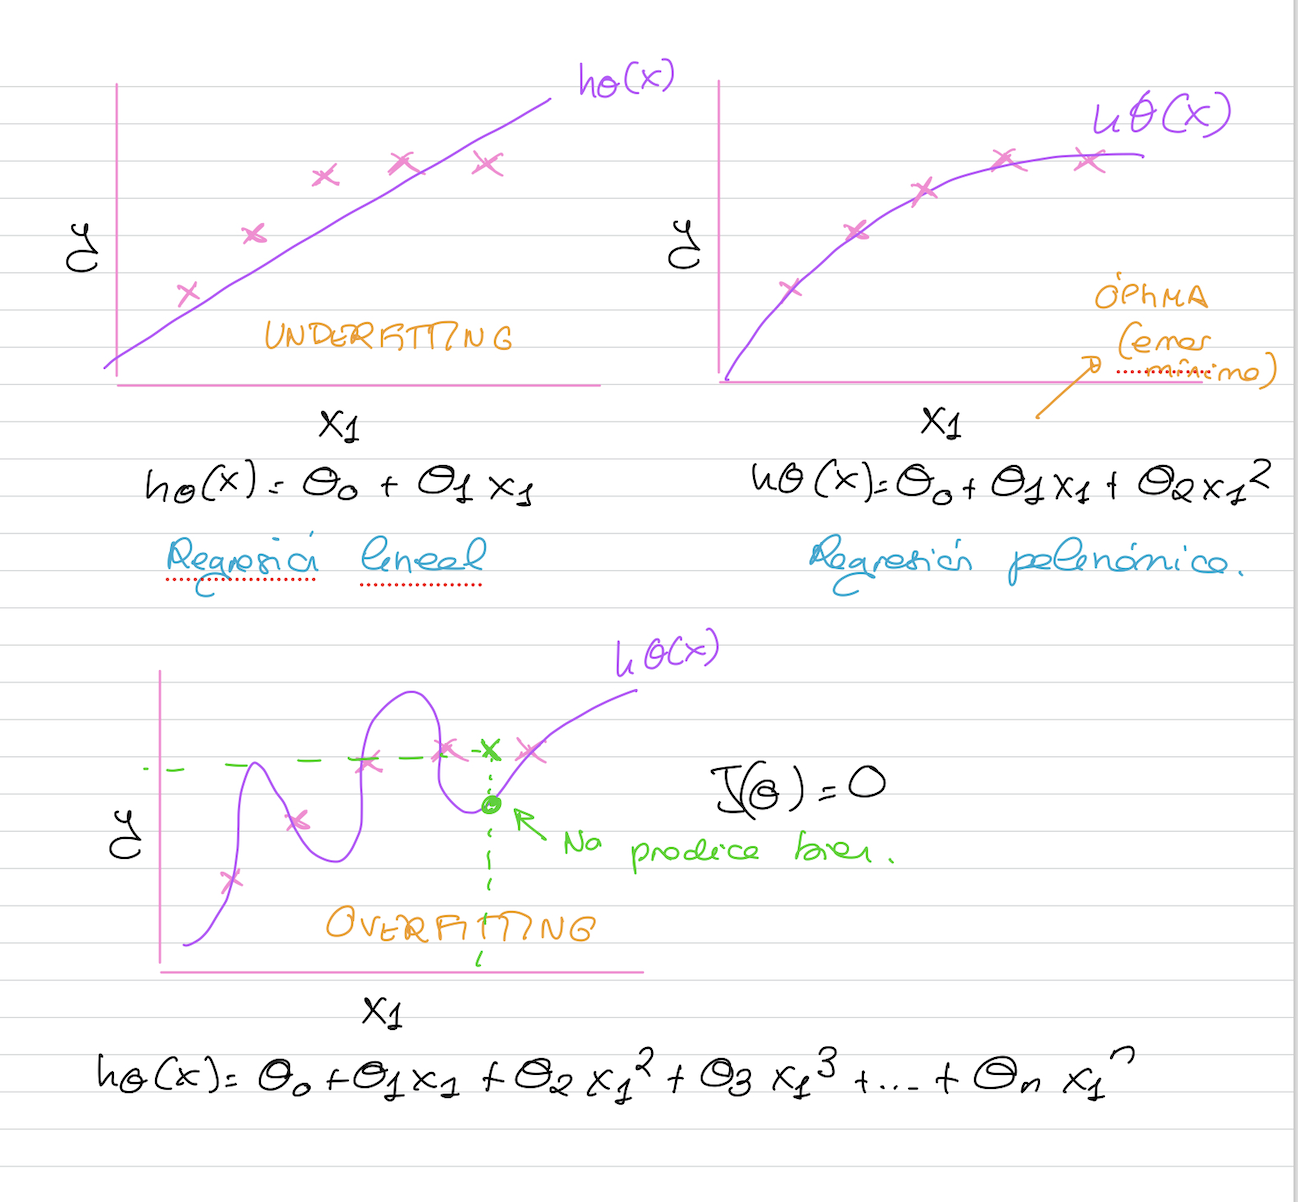 hθ(x)
y
UNDERFITTING
x1
hθ(x) = θ0 + θ1 x1
Regresión lineal
hθ(x)
y
ÓPTIMA
(error
mínimo)
x1
hθ(x) = θ0 + θ1 x1 + θ2 x1²
Regresión polinómica.
hθ(x)
y
J(θ) = 0
No predice bien.
OVERFITTING
x1
hθ(x) = θ0 + θ1 x1 + θ2 x1² + θ3 x1³ + ... + θn x1ⁿ